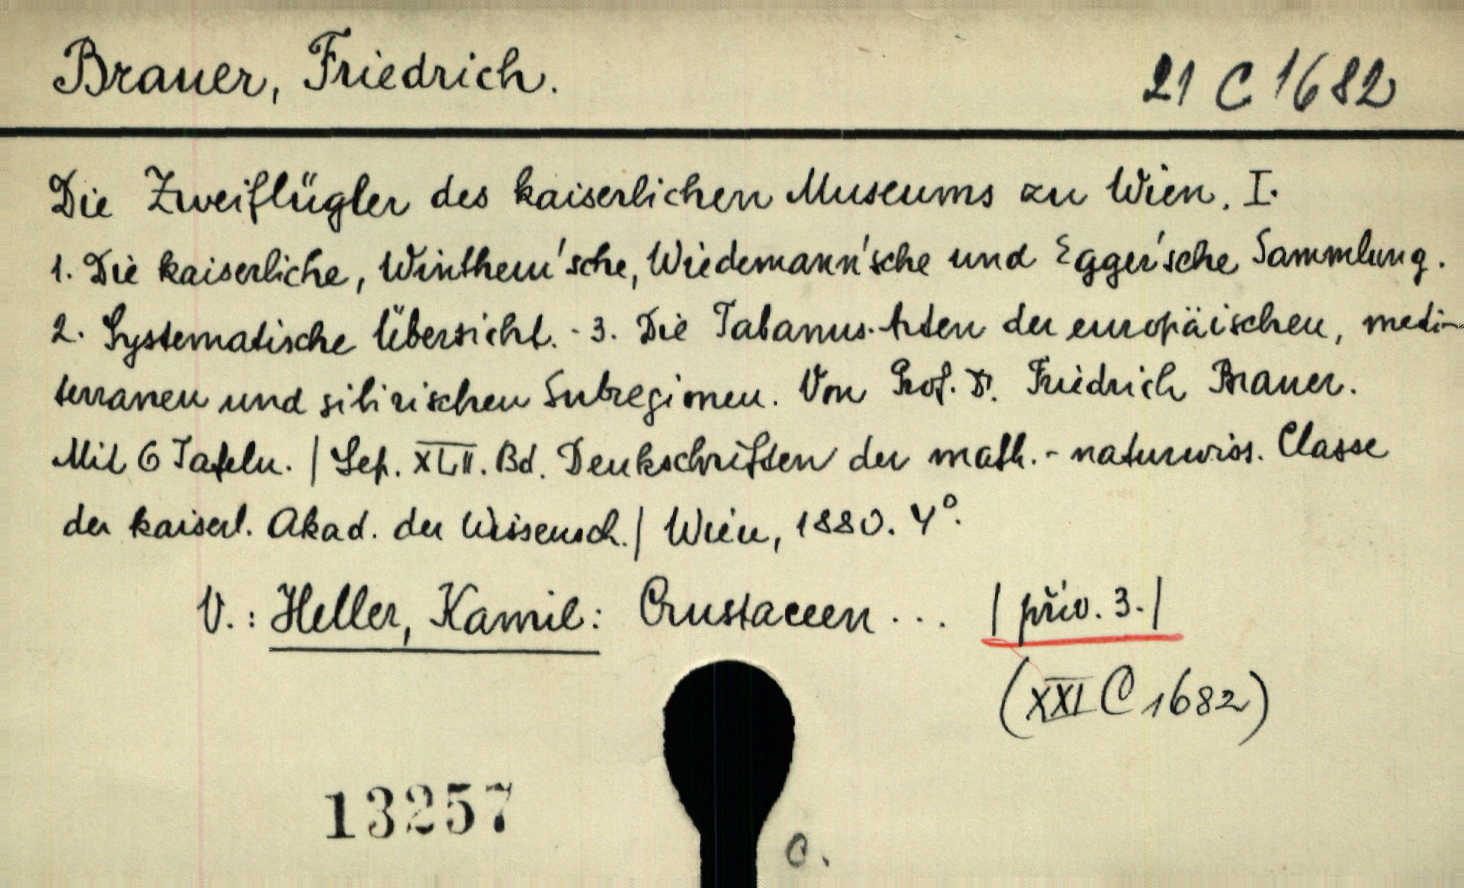 Brauer, Friedrich.
21 C 1682
Die Zweiflügler des kaiserlichen Museums zu Wien. I.
1. Die kaiserliche, Winthem'sche, Wiedemann'sche und Egger'sche Sammlung.
2. Systematische Übersicht. - 3. Die Tabanus-Arten der europäischen, medi-
terranen und sibirischen Subregionen. Von Prof. Dr. Friedrich Brauer.
Mit 6 Tafeln. | Sep. XLII. Bd. Denkschriften der math.-naturwiss. Classe
der kaiserl. Akad. der Wissensch. | Wien, 1880. 4°.
V.: Heller, Kamil: Crustaceen ... | přív. 3. |
(XXI C 1682)
13257
C.